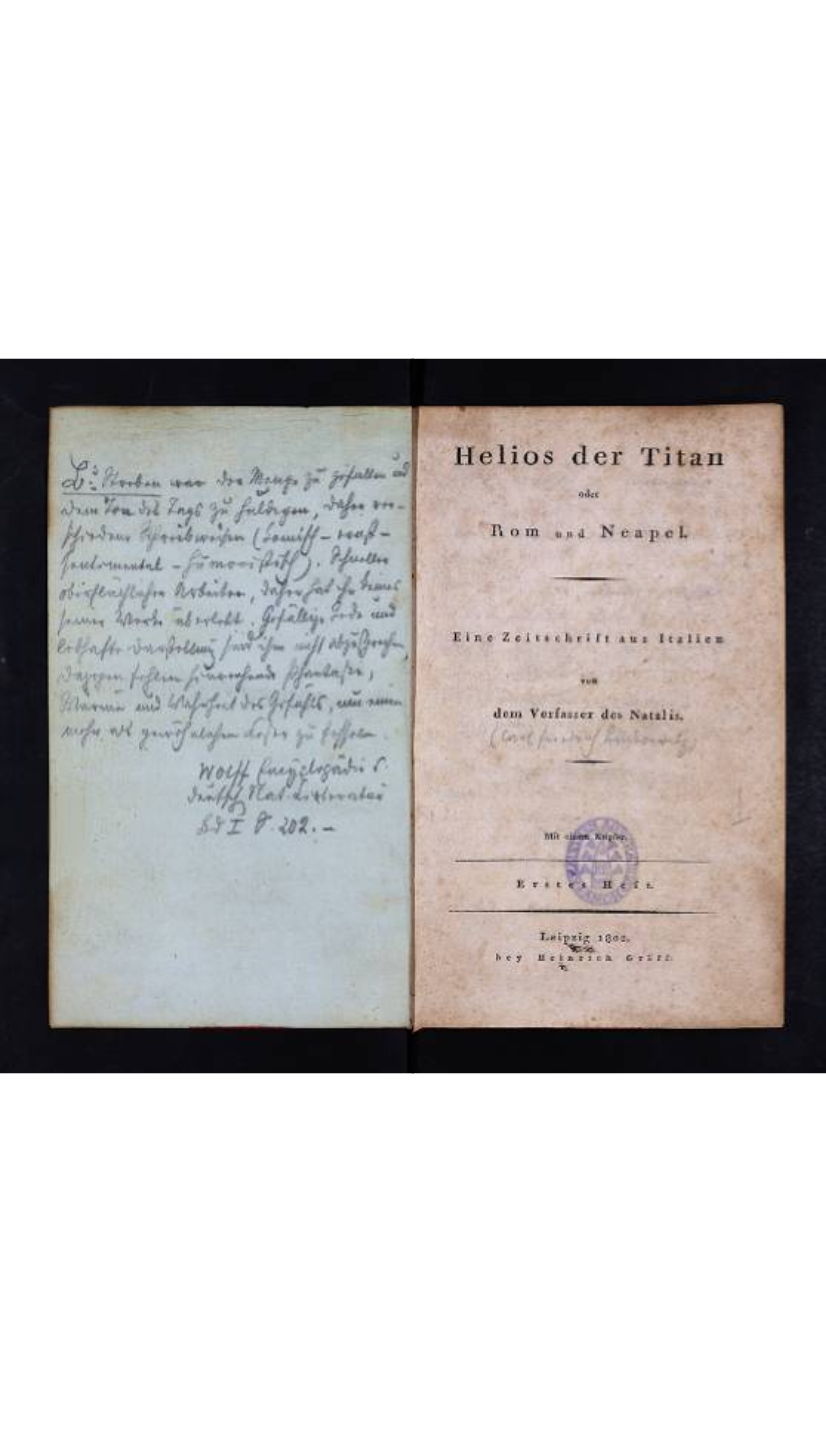 B's Streben war der Menge zu gefallen und
dem Ton des Tags zu huldigen, daher ver-
schiedene Schreibweisen (komisch - ernst -
sentimental - humoristisch). Schneller
oberflächlicher Arbeiter, daher hat ihn keines
seiner Werke überlebt. Gefällige Rede und
lebhafte Darstellung sind ihm nicht abzusprechen,
dagegen fehlen Phantasie,
Wärme und Wahrheit des Gefühls, um einen
mehr als gewöhnlichen Leser zu fesseln.
Wolff Encyclopädie d.
deutsch. Nat. Litteratur
Bd I S. 202. -
Helios der Titan
oder
Rom und Neapel.
Eine Zeitschrift aus Italien
von
dem Verfasser des Natalis.
(Carl Friedrich
Mit einem Kupfer.
Erstes Heft.
Leipzig 1802.
bey Heinrich Gräff.